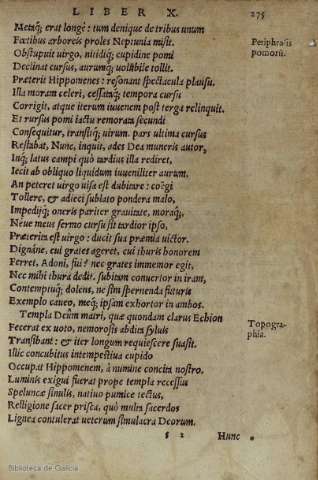 LIBER X. 275
Metaq́; erat longè: tum denique de tribus unum
Fœtibus arboreis proles Neptunia misit.
Periphrasis
pomorũ.
Obstupuit uirgo, nitidiq́; cupidine pomi
Declinat cursus, aurumq́; uolubile tollit.
Præterit Hippomenes: resonant spectacula plausu.
Illa moram celeri, cessataq́; tempora cursu
Corrigit, atque iterum iuuenem post terga relinquit.
Et rursus pomi iactu remorata secundi
Consequitur, transitq́; uirum. pars ultima cursus
Restabat, Nunc, inquit, ades Dea muneris autor,
Inq́; latus campi quò tardius illa rediret,
Iecit ab obliquo liquidum iuueniliter aurum.
An peteret uirgo uisa est dubitare: coëgi
Tollere, & adieci sublato pondera malo,
Impediiq́; oneris pariter grauitate, moraq́;,
Neue meus sermo cursu sit tardior ipso,
Præterita est uirgo: ducit sua præmia uictor.
Dignáne, cui grates ageret, cui thuris honorem
Ferret, Adoni, fui? nec grates immemor egit,
Nec mihi thura dedit. subitam conuertor in iram,
Contemptuq́; dolens, ne sim spernenda futuris
Exemplo caueo, meq́; ipsam exhortor in ambos.
Templa Deûm matri, quæ quondam clarus Echion
Fecerat ex uoto, nemorosis abdita syluis
Topogra-
phia.
Transibant: & iter longum requiescere suasit.
Illic concubitus intempestiua cupido
Occupat Hippomenem, à numine concita nostro.
Luminis exigui fuerat prope templa recessus
Speluncæ similis, natiuo pumice tectus,
Relligione sacer prisca, quò multa sacerdos
Lignea contulerat ueterum simulacra Deorum.
s 2 Hunc
Biblioteca de Galicia